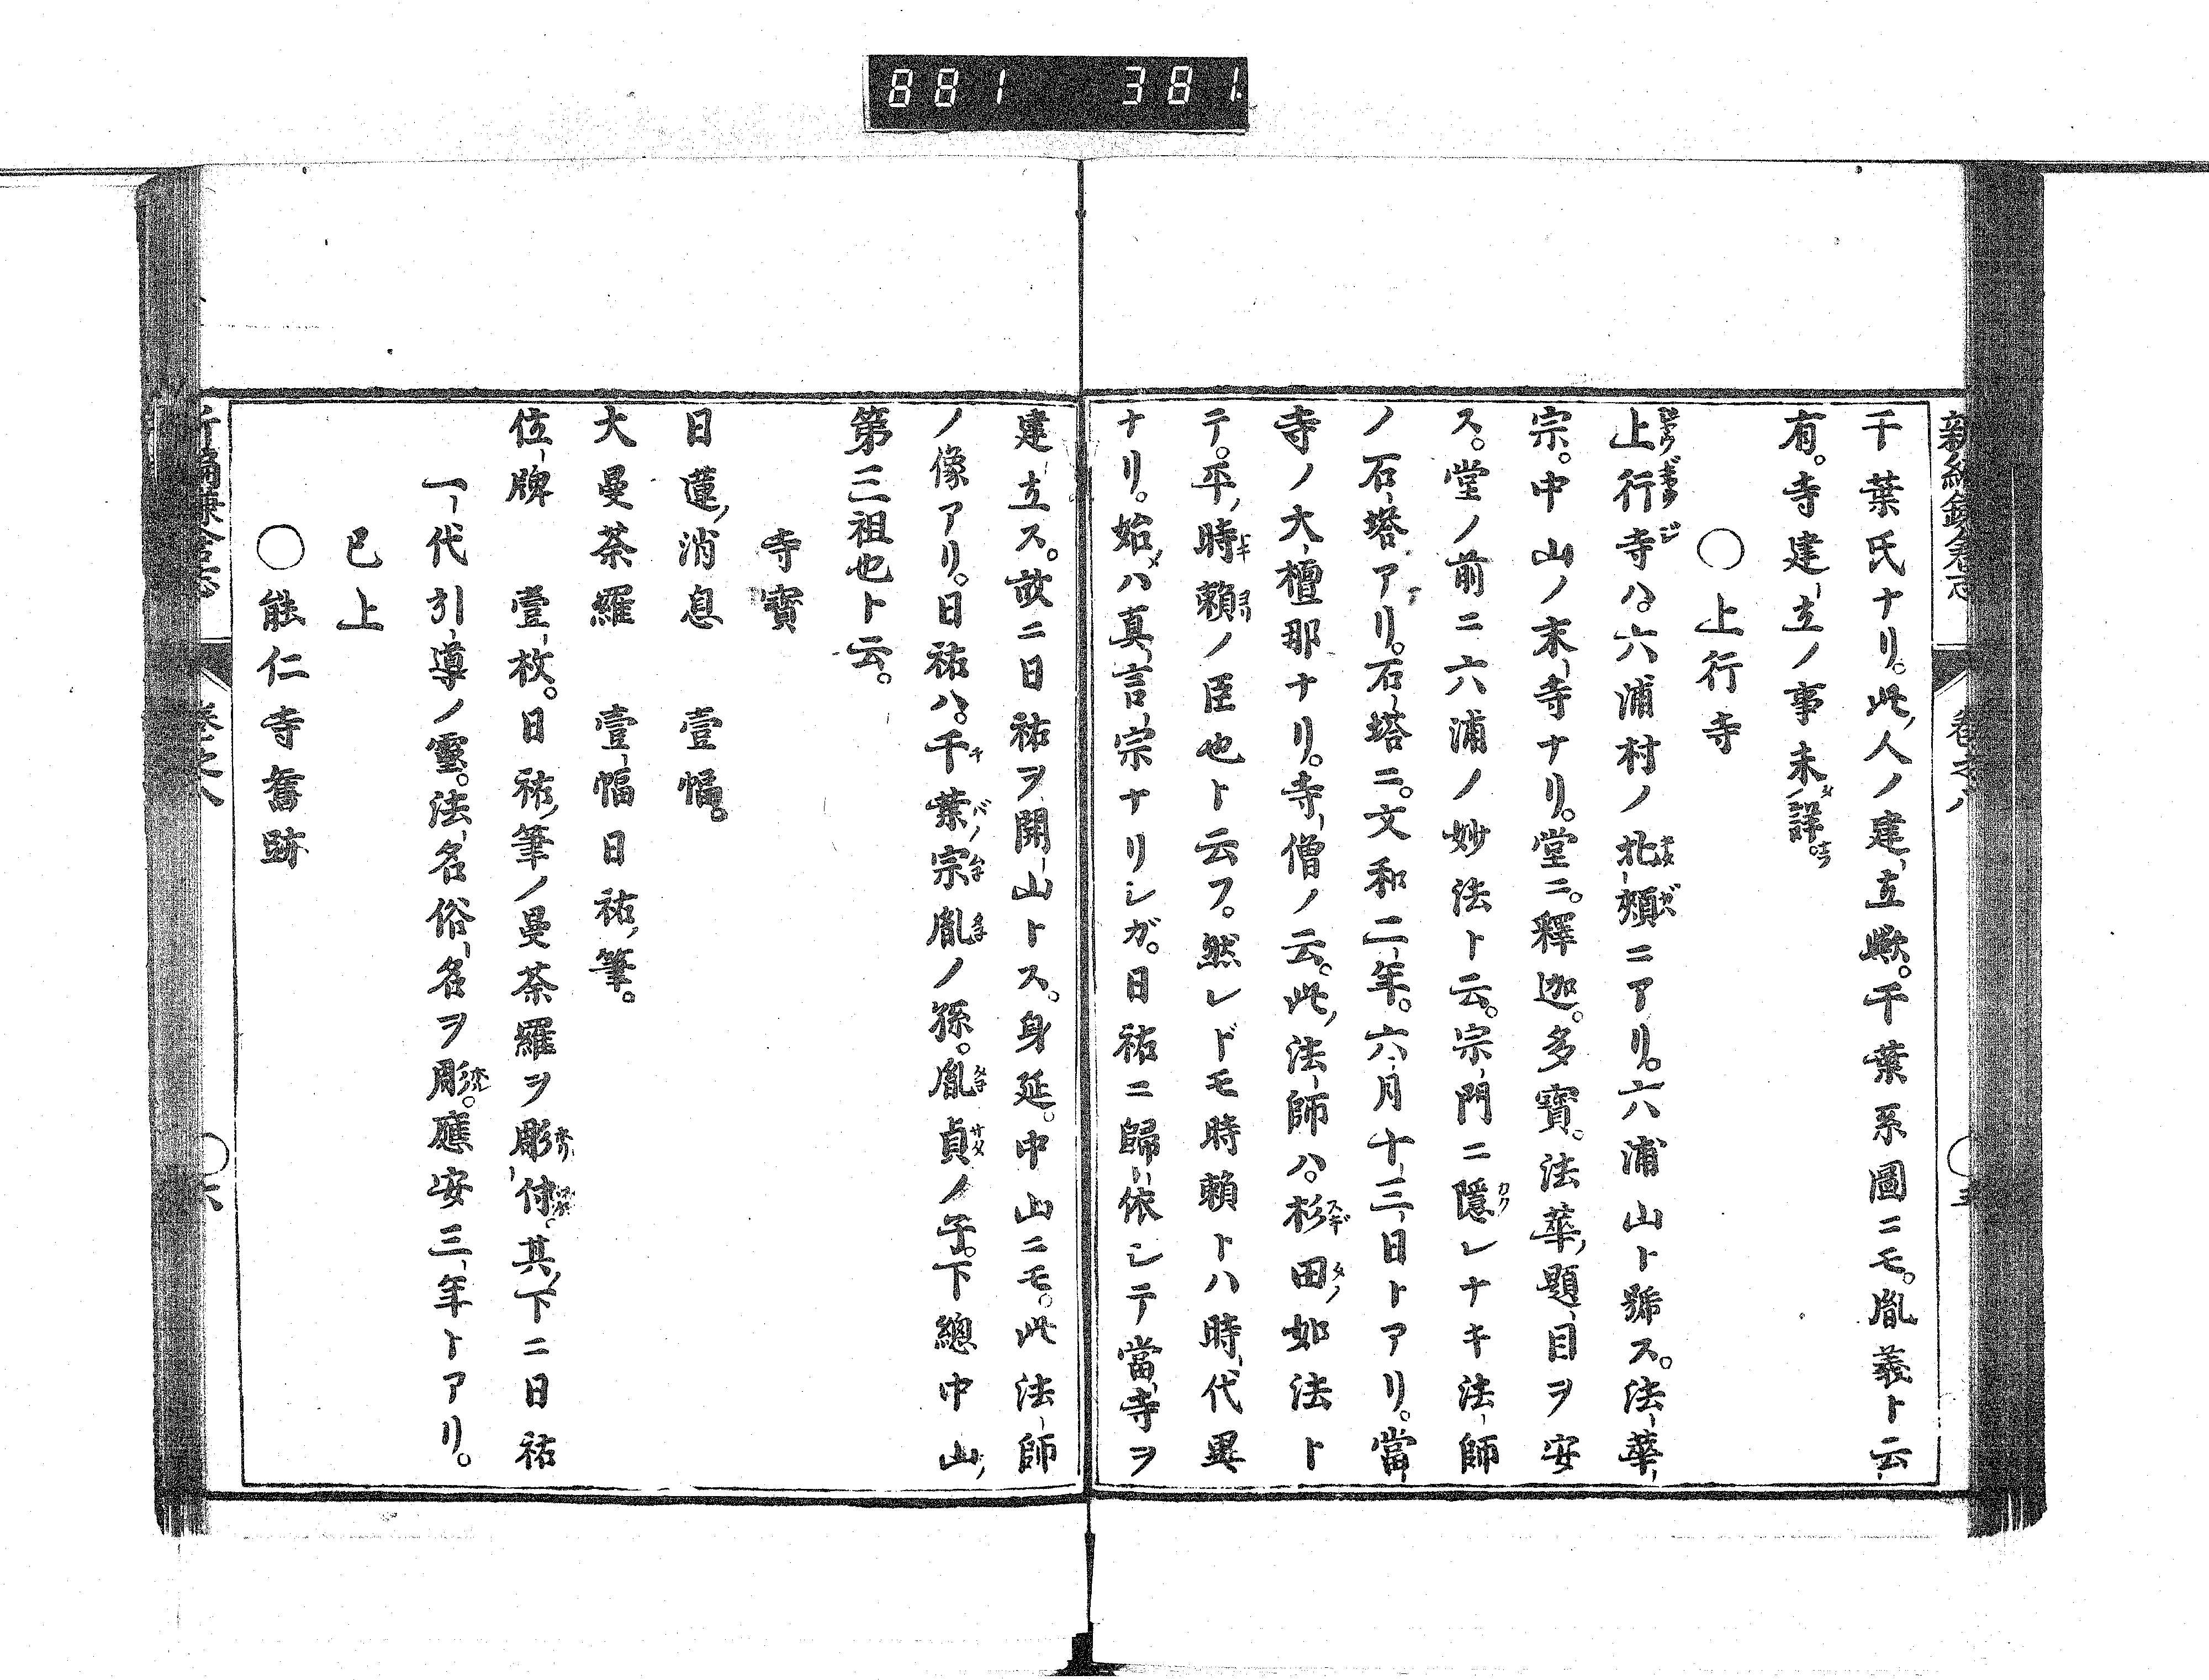 881 381
新編鎌倉志 卷之八 ○五
千葉氏ナリ。此人ノ建立歟。千葉系圖ニモ。胤義ト云
有。寺建立ノ事未詳。
○上行寺
上行寺ハ。六浦村ノ北頰ニアリ。六浦山ト號ス。法華
宗。中山ノ末寺ナリ。堂ニ。釋迦。多寶。法華題目ヲ安
ス。堂ノ前ニ六浦ノ妙法ト云。宗門ニ隱レナキ法師
ノ石塔アリ。石塔ニ。文和二年。六月十三日トアリ。當
寺ノ大檀那ナリ。寺僧ノ云。此法師ハ。杉田如法ト
テ。平時賴ノ臣也ト云フ。然レドモ時賴トハ時代異
ナリ。始ハ真言宗ナリシガ。日祐ニ歸依シテ當寺ヲ
建立ス。故ニ日祐ヲ開山トス。身延。中山ニモ。此法師
ノ像アリ。日祐ハ。千葉宗胤ノ孫。胤貞ノ子。下總中山
第三祖也ト云。
寺寶
日蓮消息 壹幅。
大曼荼羅 壹幅日祐筆。
位牌 壹枚。日祐筆ノ曼荼羅ヲ彫付。其下ニ日祐
一代引導ノ靈。法名俗名ヲ彫。應安三年トアリ。
已上
○能仁寺舊跡
新編鎌倉志 卷之八 ○六